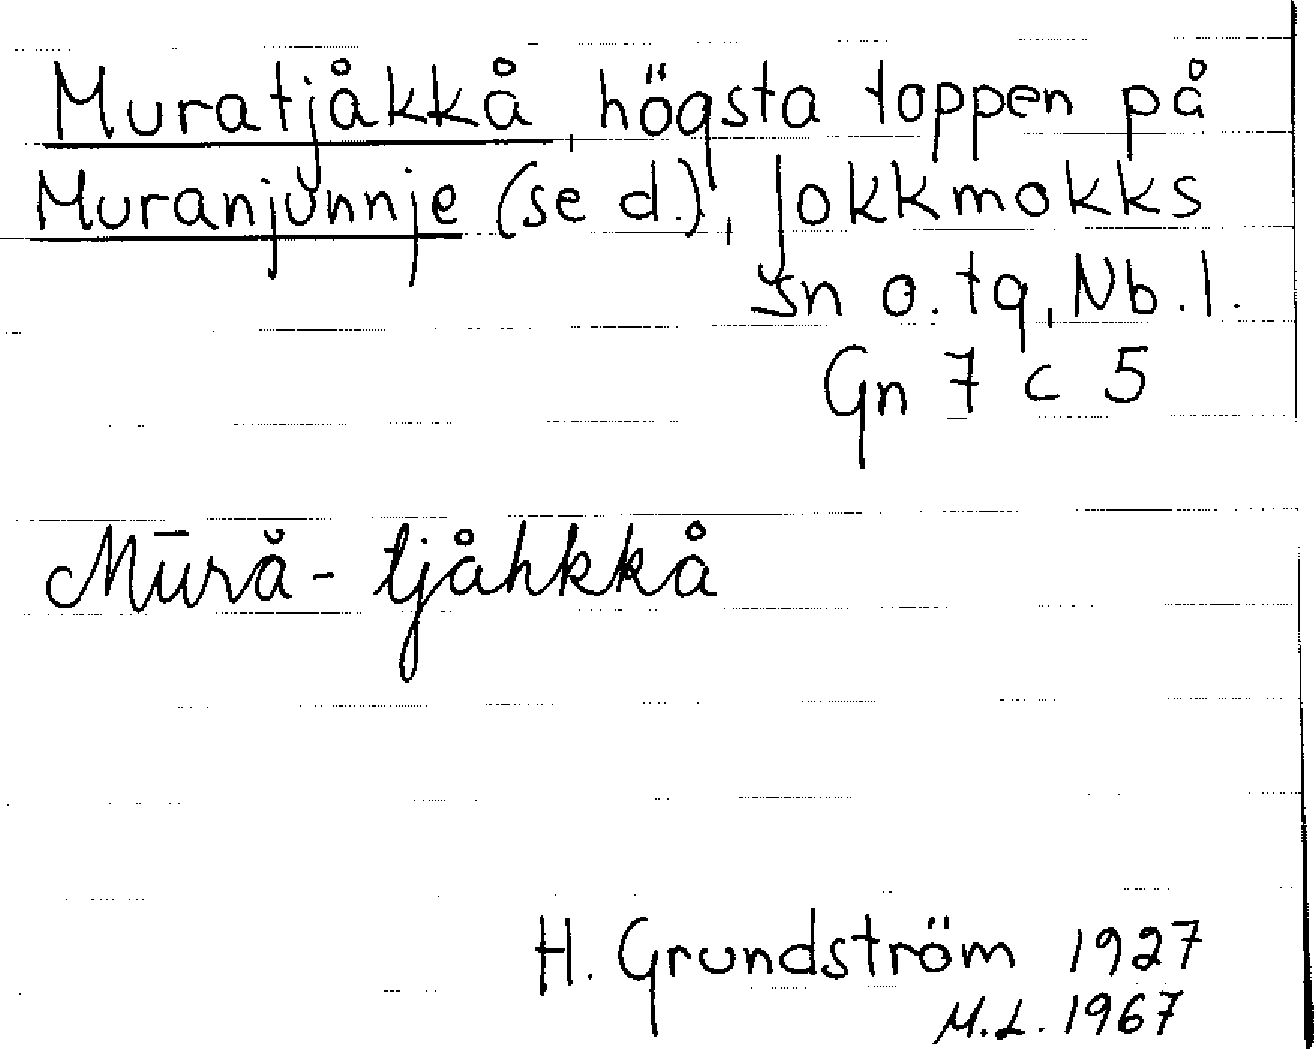 Muratjåkkå, högsta toppen på
Muranjunnje (se d.), Jokkmokks
sn o. tg, Nb. l.
Gn 7 c 5
Mūră- tjåhkkå
H. Grundström 1927
M.L. 1967